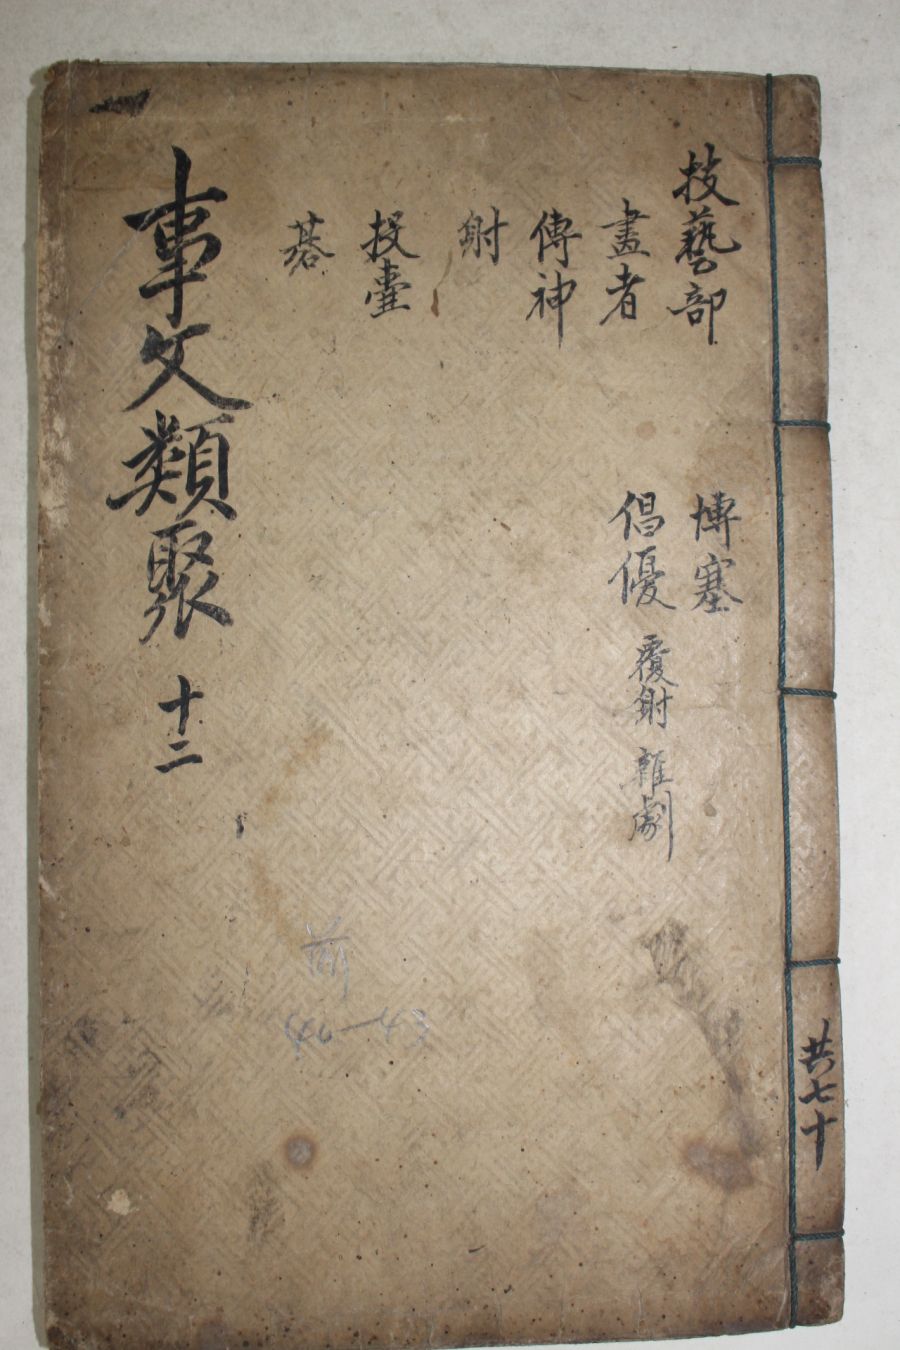 技藝部
畫者
傳神
射
投壷
碁
博塞
倡優 覆射 雜劇
事文類聚 十二
共七十
前
40-43